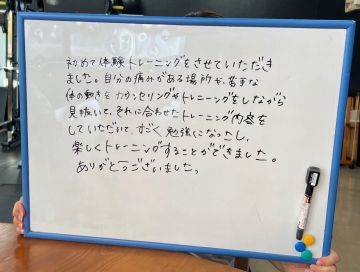 初めて体験トレーニングをさせていただき
ました。自分の痛みがある場所や、苦手な
体の動きをカウンセリングやトレーニングをしながら
見抜いて、それに合わせたトレーニング内容を
していただいて、すごく勉強になったし、
楽しくトレーニングすることができました。
ありがとうございました。